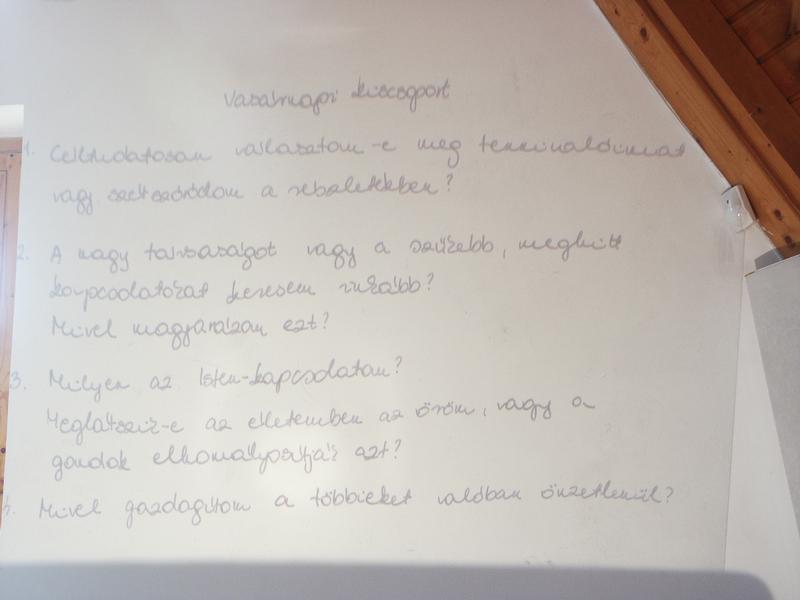 Vasárnapi kiscsoport
1. Céltudatosan választom-e meg tennivalóimat
vagy szétszóródom a részletekben?
2. A nagy társaságot vagy a szűkebb, meghitt
kapcsolatokat keresem inkább?
Mivel magyarázom ezt?
3. Milyen az Isten-kapcsolatom?
Meglátszik-e az életemben az öröm, vagy a
gondok elhomályosítják azt?
4. Mivel gazdagítom a többieket valóban önzetlenül?